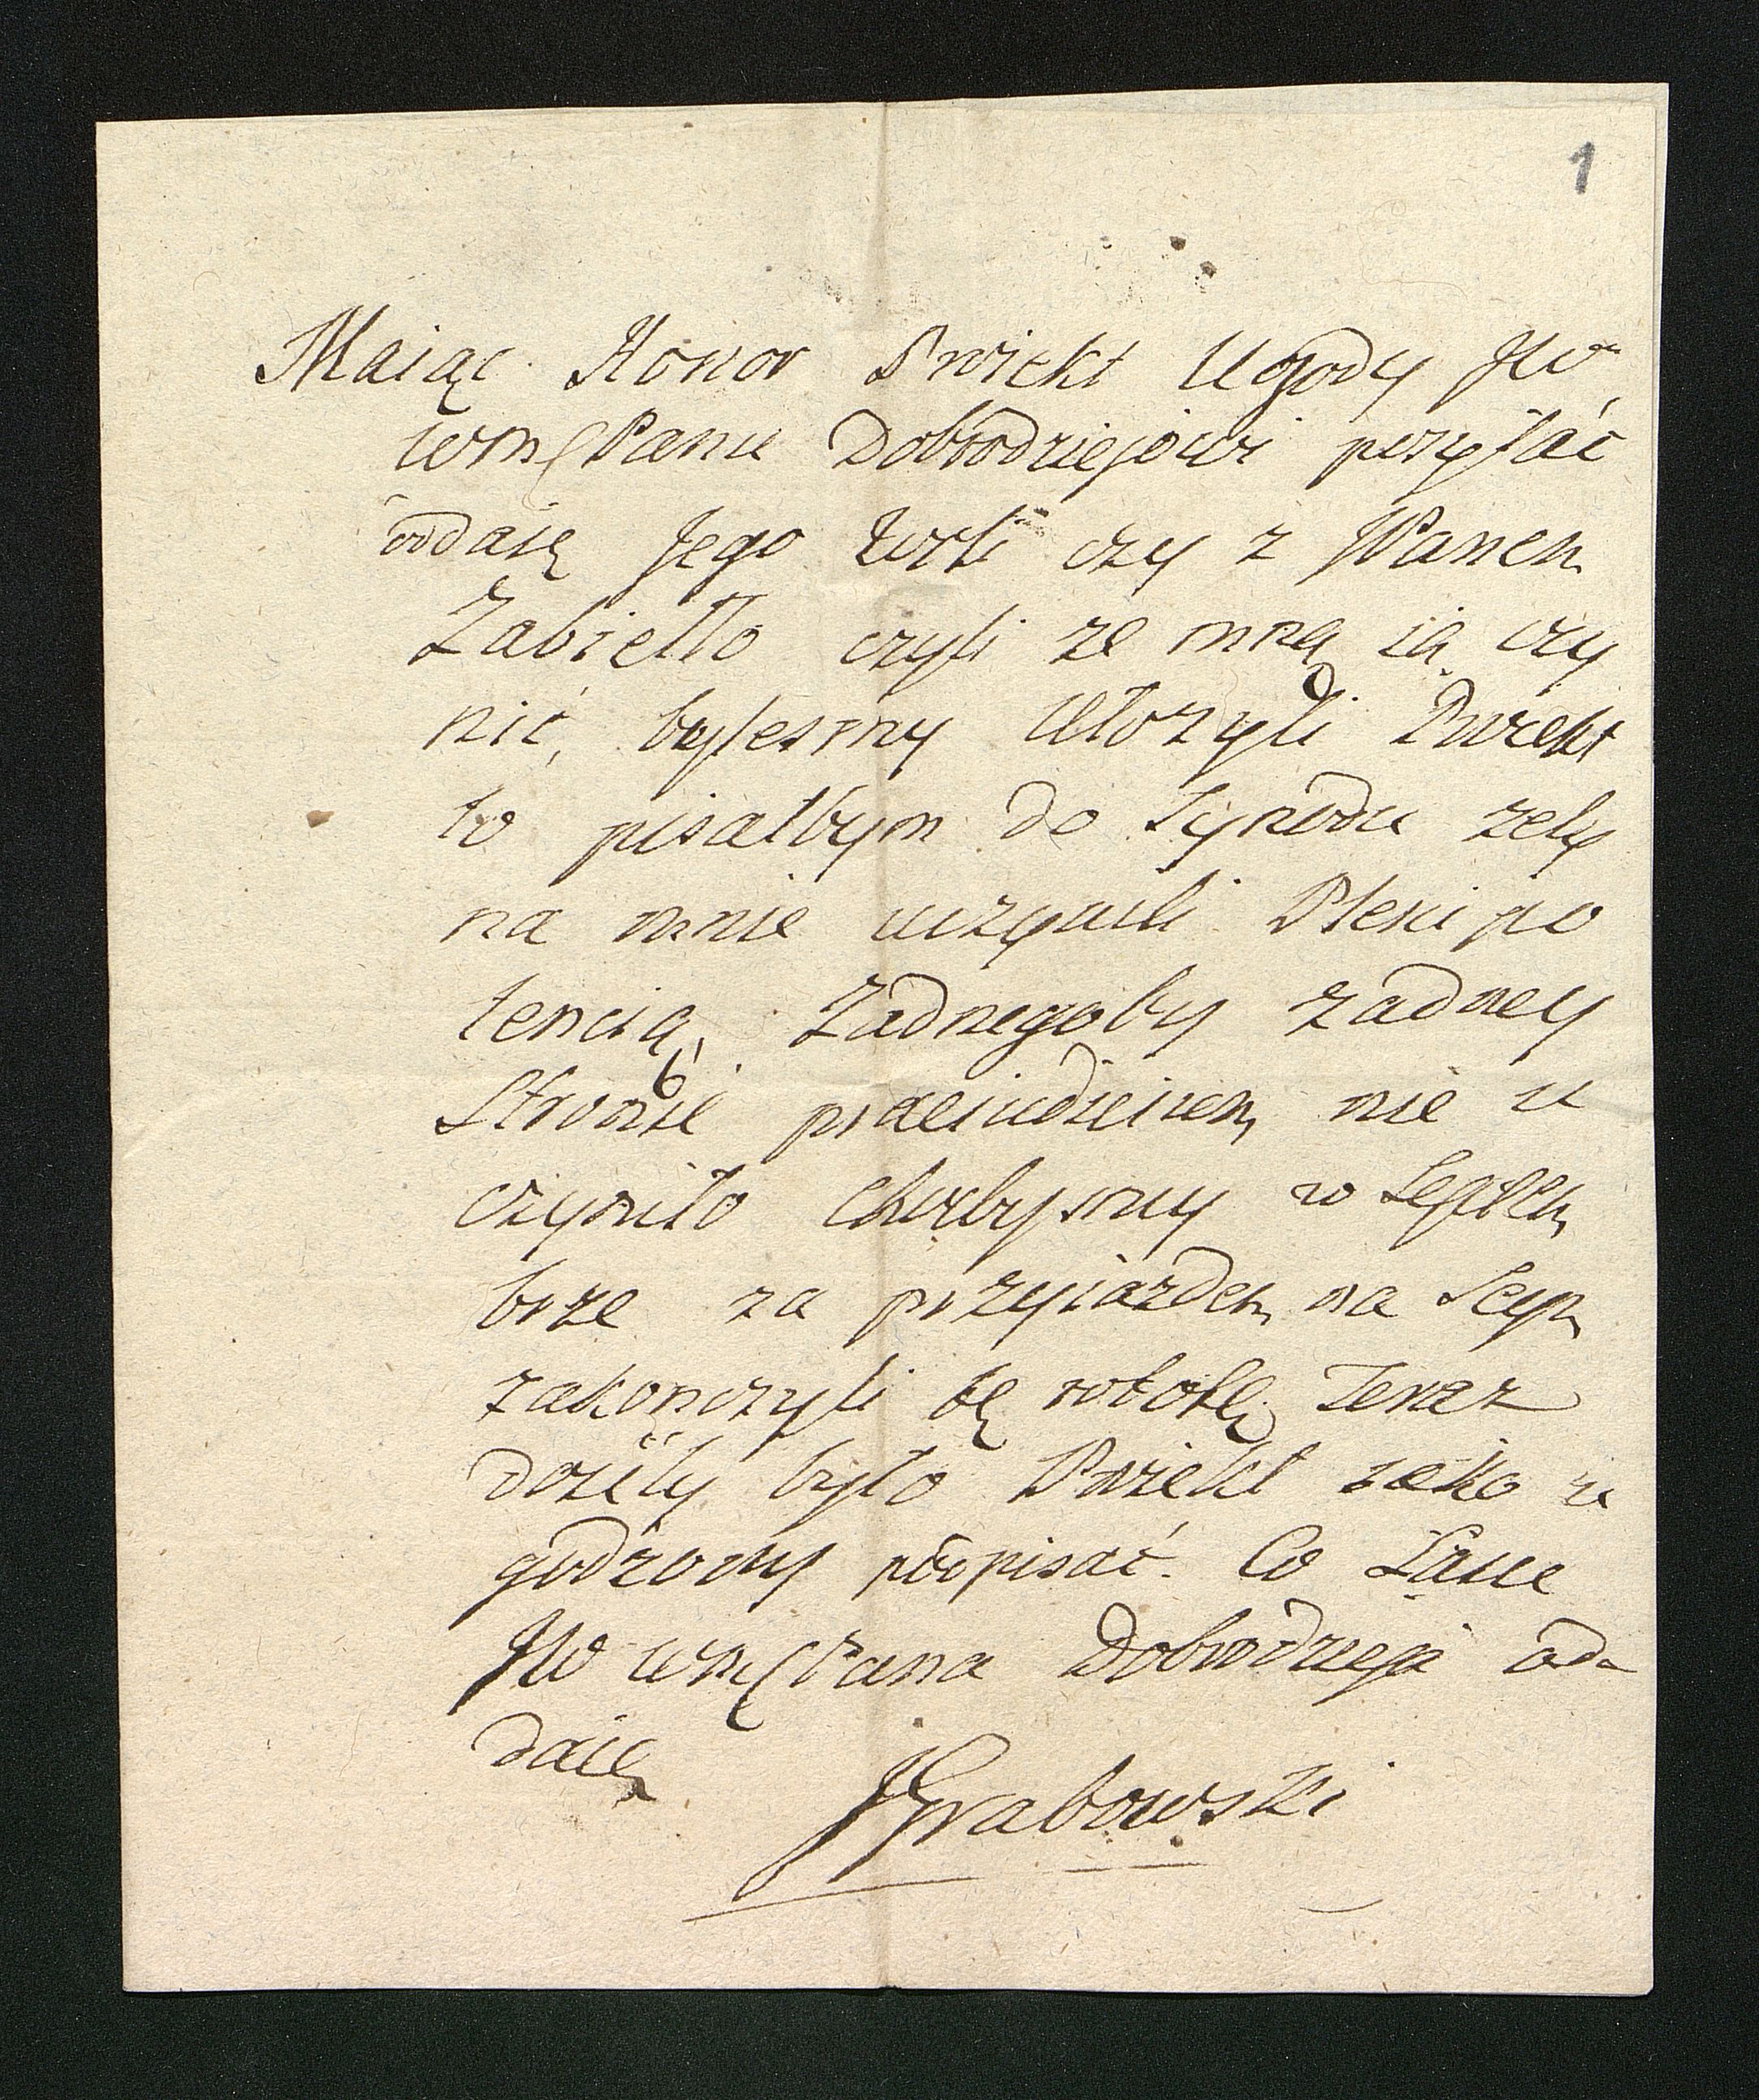 1
Maiąc Honor Proiekt Ugody JW
WmcPanu Dobrodziejowi posyłać
oddaię Jego woli czy z JPanem
Zabiełło czyli ze mną ią czy
nić, bylesmy ułozyli Proiekt
to pisałbym do Synodu zeby
na mnie uczynili Plenipo
tencią, Zadnegoby zadney
Stronie praeiudicium nie u
czyniło chocbysmy w Septem
brze za przyiazdem na Seym
zakonczyli tę robotę, Teraz
dosić by było Proiekt iako u
godzony podpisać. Co
JW WmcPana Dobrodzieja od-
daię
JGrabowski